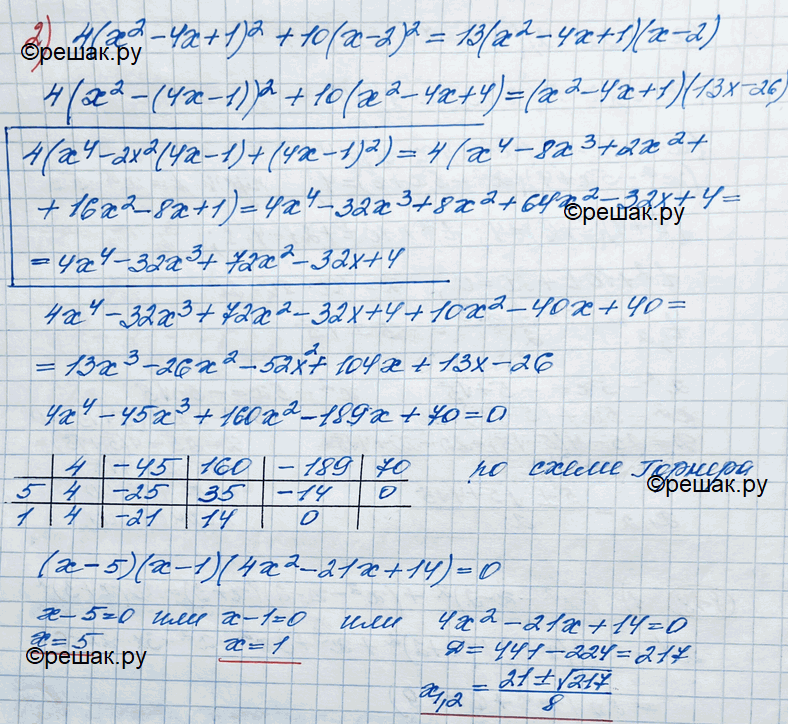 2) 4(x² - 4x + 1)² + 10(x - 2)² = 13(x² - 4x + 1)(x - 2)
©решак.ру
4(x² - (4x - 1))² + 10(x² - 4x + 4) = (x² - 4x + 1)(13x - 26)
4(x⁴ - 2x²(4x - 1) + (4x - 1)²) = 4(x⁴ - 8x³ + 2x² +
+ 16x² - 8x + 1) = 4x⁴ - 32x³ + 8x² + 64x² - 32x + 4 =
©решак.ру
= 4x⁴ - 32x³ + 72x² - 32x + 4
4x⁴ - 32x³ + 72x² - 32x + 4 + 10x² - 40x + 40 =
= 13x³ - 26x² - 52x² + 104x + 13x - 26
4x⁴ - 45x³ + 160x² - 189x + 70 = 0
4 | -45 | 160 | -189 | 70 по схеме Горнера
©решак.ру
5 | 4 | -25 | 35 | -14 | 0
1 | 4 | -21 | 14 | 0
(x - 5)(x - 1)(4x² - 21x + 14) = 0
x - 5 = 0 или x - 1 = 0 или 4x² - 21x + 14 = 0
x = 5 x = 1 Д = 441 - 224 = 217
©решак.ру
x₁,₂ = (21 ± √217) / 8